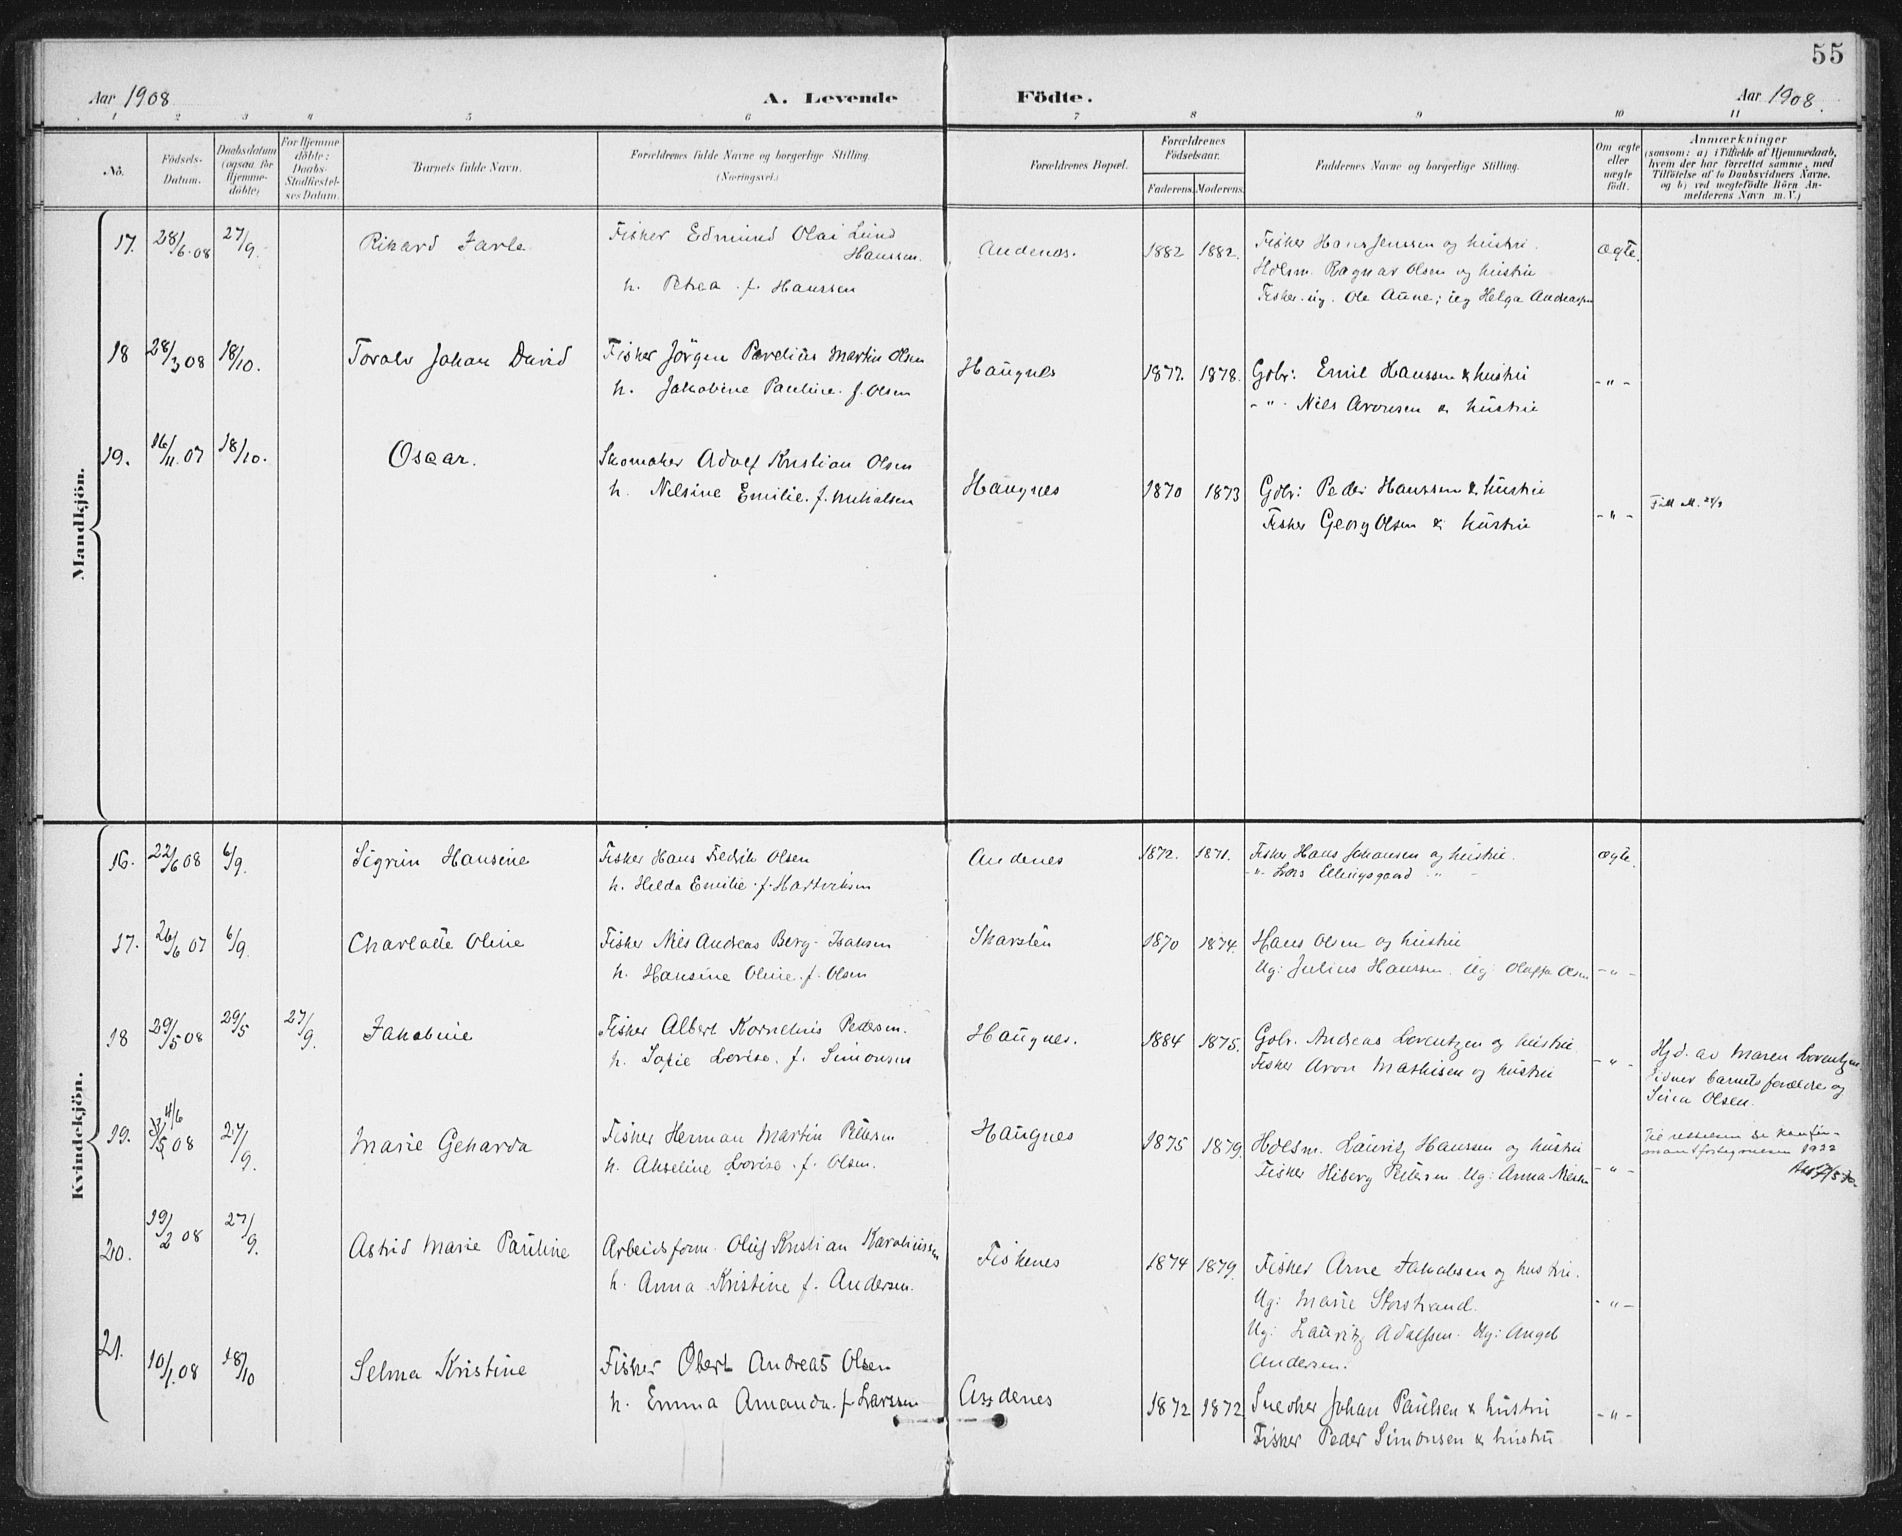 55
Aar 1908
A. Levende Födte.
Aar 1908.
1 2 3 4 5 6 7 8 9 10 11
No.
Födsels-
Datum.
Daabsdatum
(ogsaa for
Hjemme-
döbte)
For Hjemme
döbte:
Daabs-
Stadfæstel-
ses Datum.
Barnets fulde Navn.
Forældrenes fulde Navne og borgerlige Stilling.
(Næringsvei.)
Forældrenes Bopæl.
Forældrenes
Födselsaar.
Faderens. Moderens.
Faddernes Navne og borgerlige Stilling.
Om ægte
eller
uægte
födt.
Anmærkninger
(saasom: a) i Tilfælde af Hjemmedaab,
hvem der har forrettet samme, med
Tilföielse af to Daabsvidners Navne.
og b) ved uægtefödte Börn An-
melderens Navn m. V.)
Mandkjön.
17. 28/6.08 27/9. Rikard Jarle Fisker Edmund Olai Lund
Hanssen.
h. Petrea f. Hanssen
Andenes. 1882 1882. Fisker Hans Jenssen og hustru.
Hdlsm. Ragnar Olsen og hustru
Fisker ug. Ole Aune; ug Helga Andreassen
Ægte.
18 28/3 08 18/10. Toralv Johan David Fisker Jörgen Parelius Martin Olsen
h. Jakobine Pauline f. Olsen
Haugnes 1877. 1878. Gbr: Emil Hanssen & hustru
-"- Niels Aronsen & hustru
-"-
19. 16/11.07 18/10. Oscar. Skomaker Adolf Kristian Olsen
h. Nilsine Emilie. f. Mikalsen
Haugnes 1870 1873 Gbr: Peder Hanssen & hustru
Fisker Georg Olsen & hustru
-"-
Kvindekjön.
16. 22/6 08 6/9. Sigrun Hansine Fisker Hans Fredrik Olsen
h. Hilda Emilie f. Hartviksen
Andenes 1872. 1871. Fisker Hans Johansen og hustru.
-"- Lars Ellingsgaard "
Ægte.
17. 26/6 07 6/9. Charlotte Oline Fisker Nils Andreas Berg-Isaksen
h. Hansine Oline f. Olsen
Skarsten 1870 1874. Hans Olsen og hustru
Ug: Julius Hanssen. Ug: Oluffa Olsen
-"-
18 29/5 08 29/5 27/9. Jakobine Fisker Albert Kornelius Pedersen.
h. Sofie Lovise. f. Simonsen
Haugnes. 1884 1875. Gbr. Andreas Lorentzen og hustru
Fisker Aron Mathisen og hustru
-"-
Hjd. av Maren Lorentzen
Vidner barnets forældre og
Sina Olsen.
19. 4/6
08 27/9. Marie Geharda Fisker Herman Martin Petersen
h. Akseline Lovise. f. Olsen.
Haugnes 1875 1879. Hdlsm. Lauritz Hanssen og hustru
Fisker Hiberg Petersen Ug: Anna
-"-
1922
20. 19/2 08 27/9. Astrid Marie Pauline Arbeidsform. Oluf Kristian Karoliussen
h. Anna Kristine f. Andersen.
Fiskenes 1874 1879. Fisker Arne Jakobsen og hustru.
Ug: Marie Storstrand.
Ug: Lauritz Adolfsen. Ug: Angel
Andersen.
-"-
21. 10/1.08 18/10 Selma Kristine Fisker Obert Andreas Olsen
h. Emma Amanda f. Larssen
Andenes 1872 1872 Snedker Johan Paulsen & hustru
Fisker Peder Simonsen & hustru
-"-